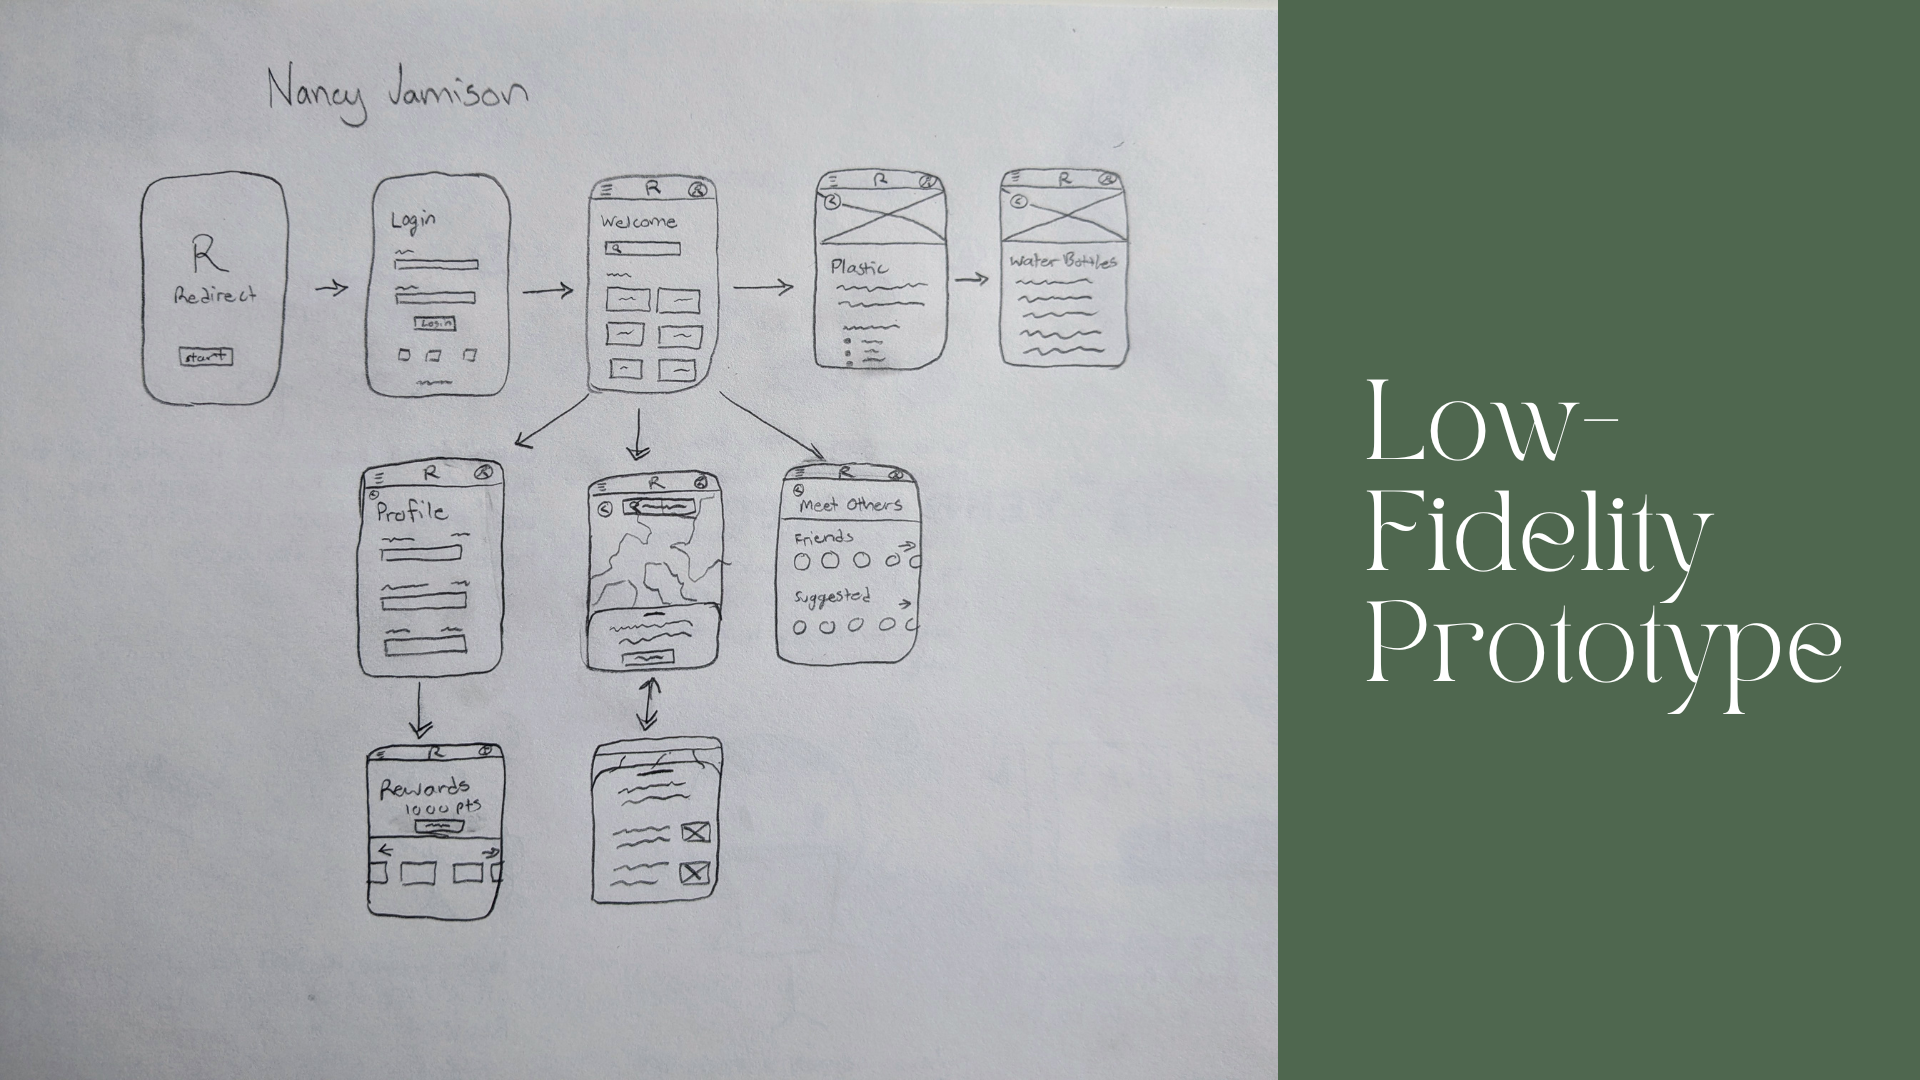 Nancy Jamison
R
Redirect
start
Login
Login
R
Welcome
R
Plastic
R
Water Bottles
R
Profile
R
R
Meet Others
Friends
Suggested
R
Rewards
1000 pts
Low-
Fidelity
Prototype